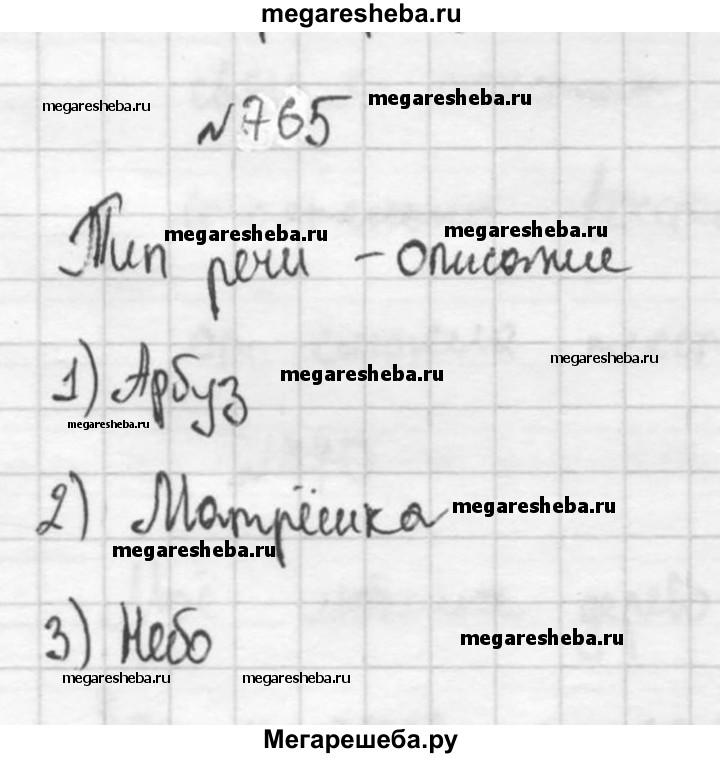 megaresheba.ru
megaresheba.ru megaresheba.ru
№765
megaresheba.ru megaresheba.ru
Тип речи - описание
megaresheba.ru
1) Арбуз megaresheba.ru
megaresheba.ru
2) Матрёшка megaresheba.ru
megaresheba.ru
3) Небо megaresheba.ru
megaresheba.ru megaresheba.ru
Мегарешеба.ру